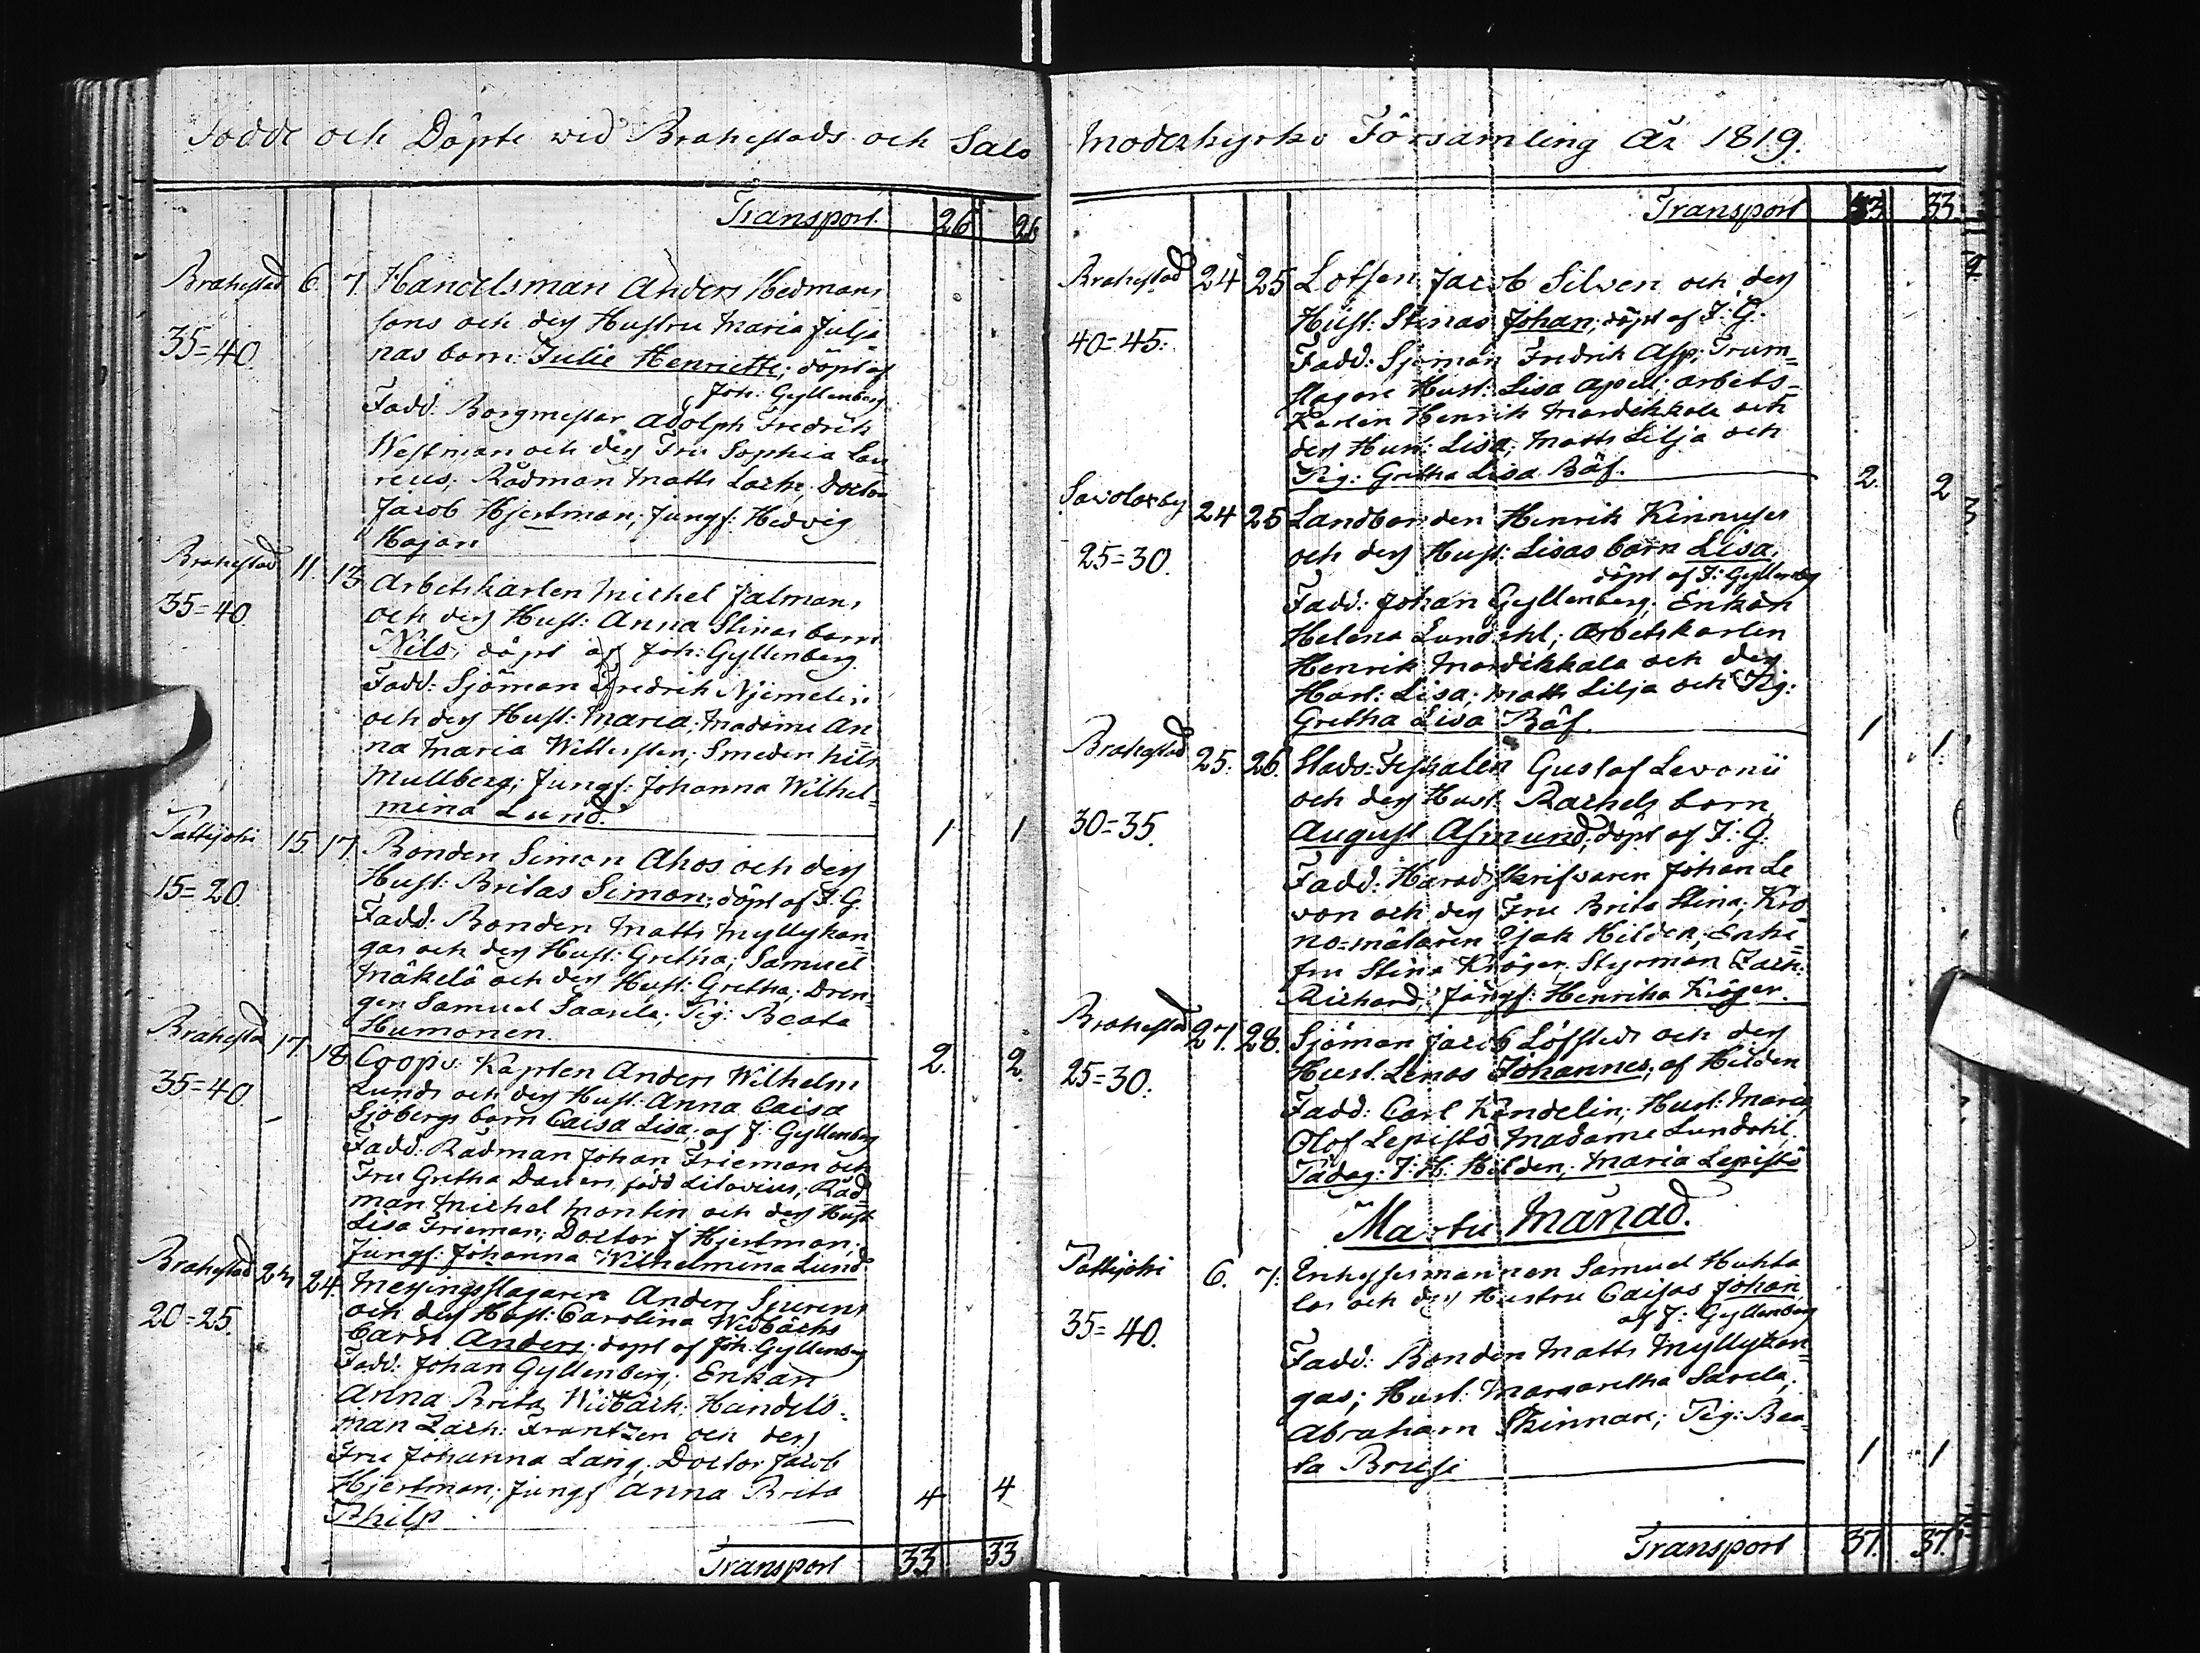 Födde och Döpte wid Brahestads och Salo
Transport 26 26
Brahestad 6. 7. Handelsman Anders Hedmans
sons och des Hustru Maria Julia
35=40. nas barn Julie Henriette; döpt af
Joh: Gyllenberg
Fadd: Borgmestar Adolph Fredrik
Westman och des Fru Sophia Lau
reus; Rådman Matts Lache, Doctor
Jacob Hjertman; Jungf: Hedvig
Hajan
Brahestad 11. 13 Arbetskarlen Michel Jalmans
35=40. och des Hust: Anna Stinas barn
Nils; döpt af Joh: Gyllenberg.
Fadd: Sjöman Fredrik Njemelin
och des Hust: Maria; Madame An
na Maria Willersten; Smeden Nils
Mullberg; Jungf: Johanna Wilhel=
mina Lund. 1 1
Pattijoki 15 17. Bonden Simon Ahos och des
15=20. Hust: Britas Simon; döpt af J:G.
Fadd: Bonden Matts Myllykan=
gas och des Hust: Gretha; Samuel
Mäkelä och des Hust: Gretha; Dren=
gen Samuel Saarela; Pig: Beata
Humonen. 2. 2.
Brahestad 17. 18. Coopv: Kapten Anders Wilhelm
35=40. Lunds och des Hust: Anna Caisa
Sjöbergs barn Caisa Lisa; af J: Gyllenberg
Fadd: Rådman Johan Frieman och
Fru Gretha född Lilovius; Råd=
man Michel Montin och des Hust:
Lisa Frieman; Doctor J Hjertman;
Jungf: Johanna Wilhelmina Lund
Brahestad 24. Messingsslagaren Anders Sjurens
20=25. och des Hust: Carolina Widbäcks
barn Anders; döpt af Joh: Gyllenberg
Fadd: Johan Gyllenberg; Enkan
Anna Brita Widbäck; Handels=
man Zach: Frantzen och des
Fru Johanna Lang; Doctor Jacob
Hjertman; Jungf Anna Brita
Philp 4 4
Transport 33 33
Moderkyrko Församling År 1819.
Transport 33 33.
Brahestad 24 25 Lotsen Jacob Silven och des
Hust: Stinas Johan; döpt af J:G.
40=45: Fadd: Sjöman Fredrik Asp; Trum=
slagare Hust: Lisa Apell; arbets=
karlen Henrik Mardikkala och
des Hust: Lisa; Matts Lilja och
Pig: Gretha Lisa Bäf. 2. 2
Savolaxby 24 25 Landbonden Henrik Kinnuses
25=30. och des Hust: Lisas barn Lisa,
döpt af J: Gyllenberg
Fadd: Johan Gyllenberg; Enkan
Helena Lundahl; Arbetskarlen
Henrik Mardikkala och des
Hust: Lisa; Matts Lilja och Pig:
Gretha Lisa Bäf. 1 1.
Brahestad 25. 26. Stads-Fiskalen Gustaf Levonii
och des Hust: Rachels barn
30=35. August Asmund; döpt af J:G.
Fadd: Haradsskrifvaren Johan Le
von och des Fru Brita Stina; Kro
no-målaren Isak Hilden; Enke=
fru Stina Kröger, Styrman Zach:
Richard; Jungf: Henrika Kröger.
Brahestad 27. 28. Sjöman Jacob Löfstedt och des
25=30. Hust. Lenas Johannes; af Hilden
Fadd: Carl Kandelin; Hust: Maria;
Olof Lepistö Madame Lundahl;
Pådag: J: H: Hilden; Maria Lepistö
Martii Månad.
Pattijoki 6. 7. Samuel Huhta
las och des Hustru Caisas Johan
af J: Gyllenberg
35=40. Fadd: Bonden Matts Myllykan=
gas; Hust: Margaretha Sarela;
Abraham Skinnare; Pig: Bea=
ta Bruse 1 1
Transport 37. 37.